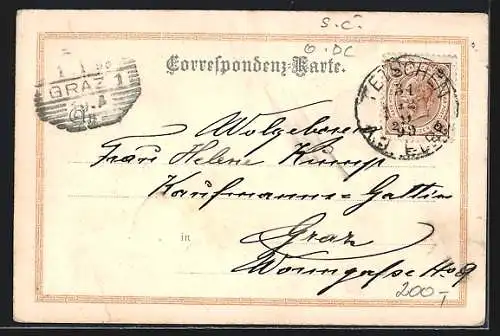 S.C.
G. DC
Correspondenz-Karte.
GRAZ 1
TETSCHEN
Wolgeboren
Frau Helene Kump
Kaufmanns-Gattin
in Graz
Wonngasse No 9
200,-